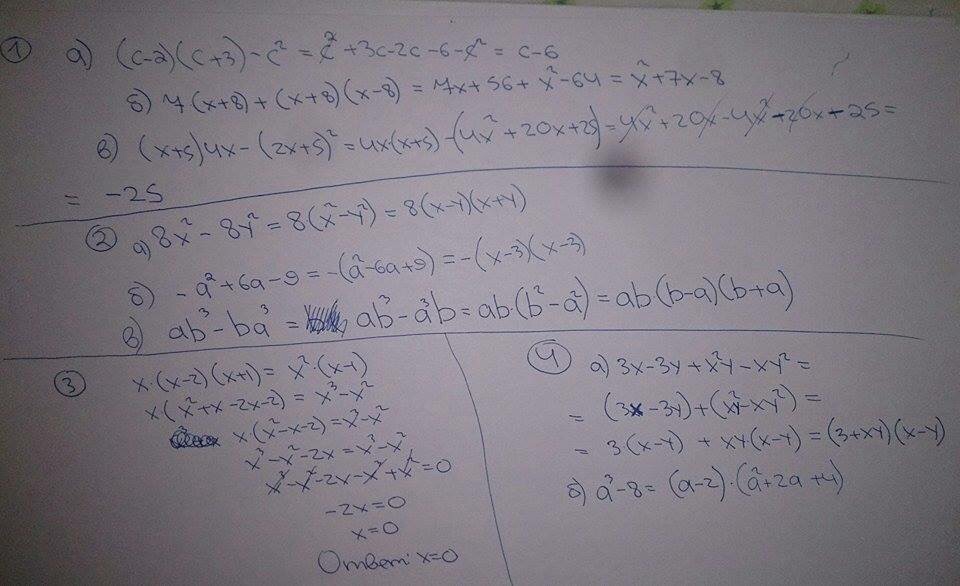 ① а) (c-2)(c+3)-c² = c²+3c-2c-6-c² = c-6
б) 7(x+8)+(x+8)(x-8) = 7x+56+x²-64 = x²+7x-8
в) (x+5)4x-(2x+5)² = 4x·(x+5)-(4x²+20x+25) = 4x²+20x-4x²-20x-25 =
= -25
② а) 8x²-8y² = 8(x²-y²) = 8(x-y)(x+y)
б) -a²+6a-9 = -(a²-6a+9) = -(x-3)(x-3)
в) ab³-ba³ = ab³-a³b = ab·(b²-a²) = ab(b-a)(b+a)
③ x·(x-2)(x+1) = x²·(x-1)
x(x²+x-2x-2) = x³-x²
x(x²-x-2) = x³-x²
x³-x²-2x = x³-x²
x³-x²-2x-x³+x² = 0
-2x=0
x=0
Ответ: x=0
④ а) 3x-3y+x²y-xy² =
= (3x-3y)+(x²y-xy²) =
= 3(x-y) + xy(x-y) = (3+xy)(x-y)
б) a³-8 = (a-2)·(a²+2a+4)